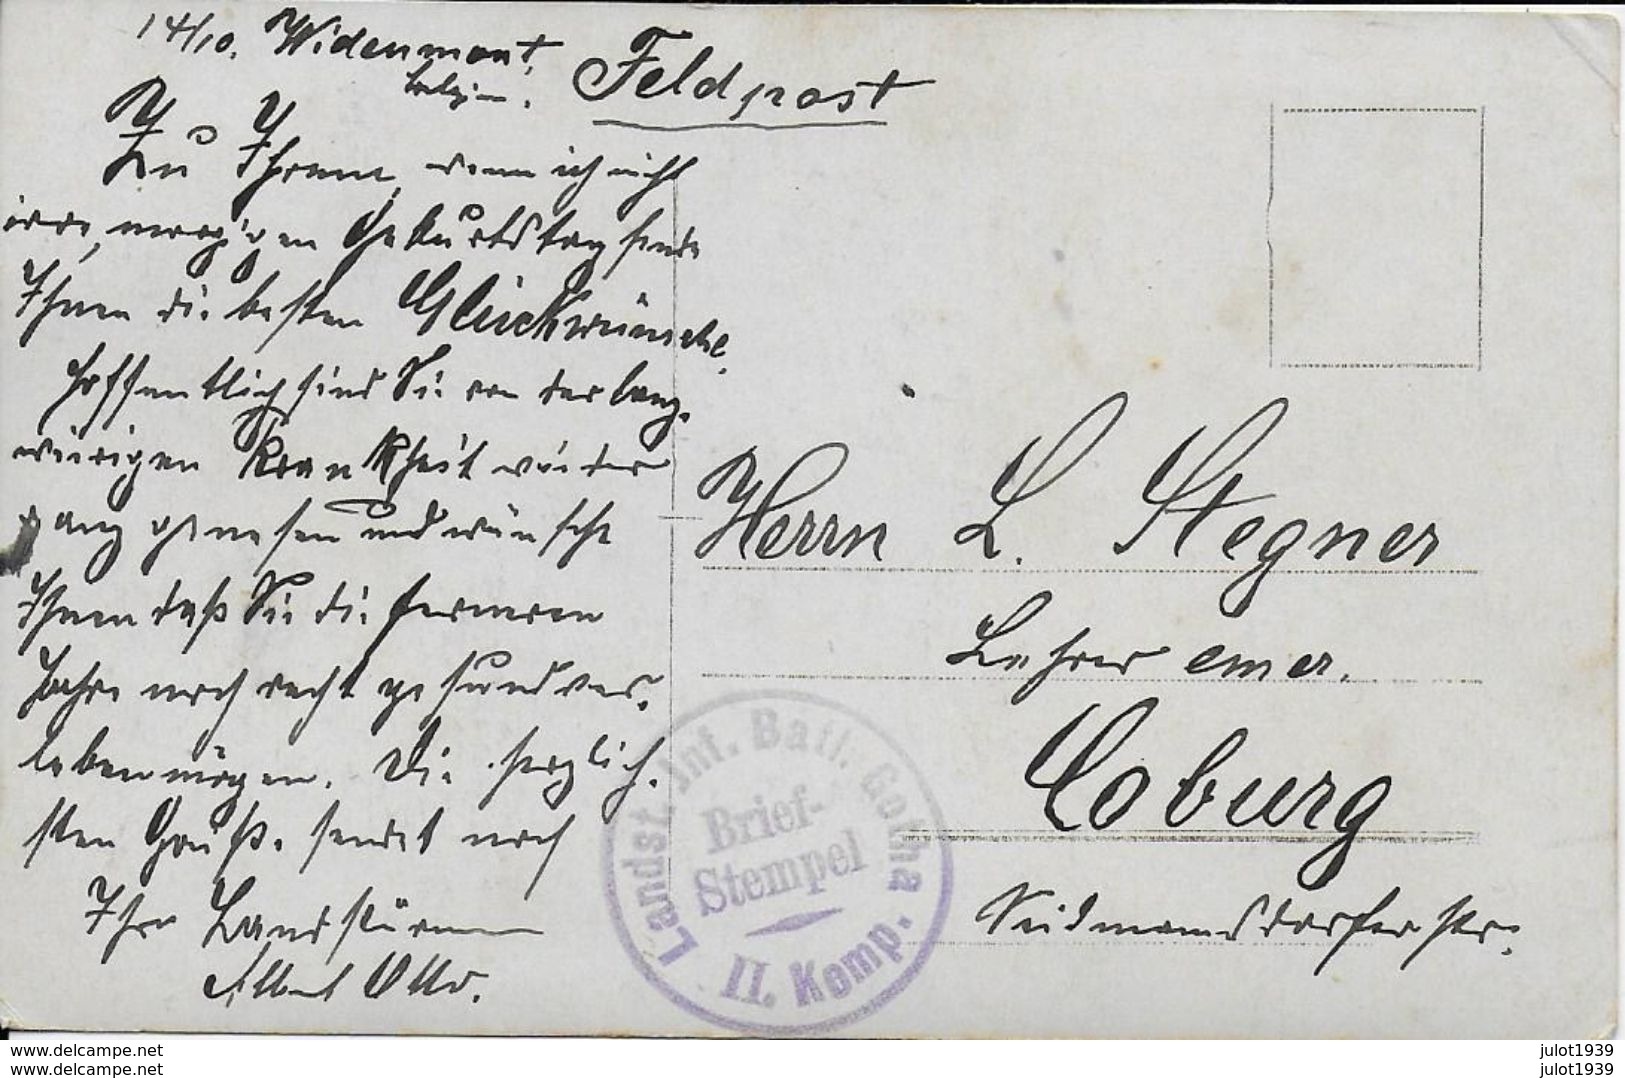 14/10. Widenmont, Feldpost
Belgien.
Zu Ihrem, wenn ich nicht
irre, morgigen Geburtstag sende
Ihnen die besten Glückwünsche.
Hoffentlich sind Sie von der lang-
wierigen Krankheit wieder
ganz genesen und wünsche
Ihnen daß Sie die ferneren
Jahre noch recht gesund ver-
leben mögen. Die herzlich-
sten Grüße sendet noch
Ihr Landstürmer
Albert Otto.
Herrn L. Stegner
Lehrer emer.
Coburg
Seidmannsdorfer str.
Landst. Inf. Batl. Gotha
Brief-
Stempel
II. Komp.
www.delcampe.net
www.delcampe.net
julot1939
julot1939